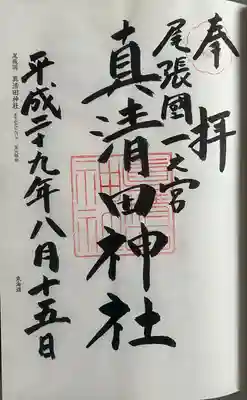 奉拝
尾張國一之宮
真清田神社
平成二十九年八月十五日
尾張国 真清田神社
東海道